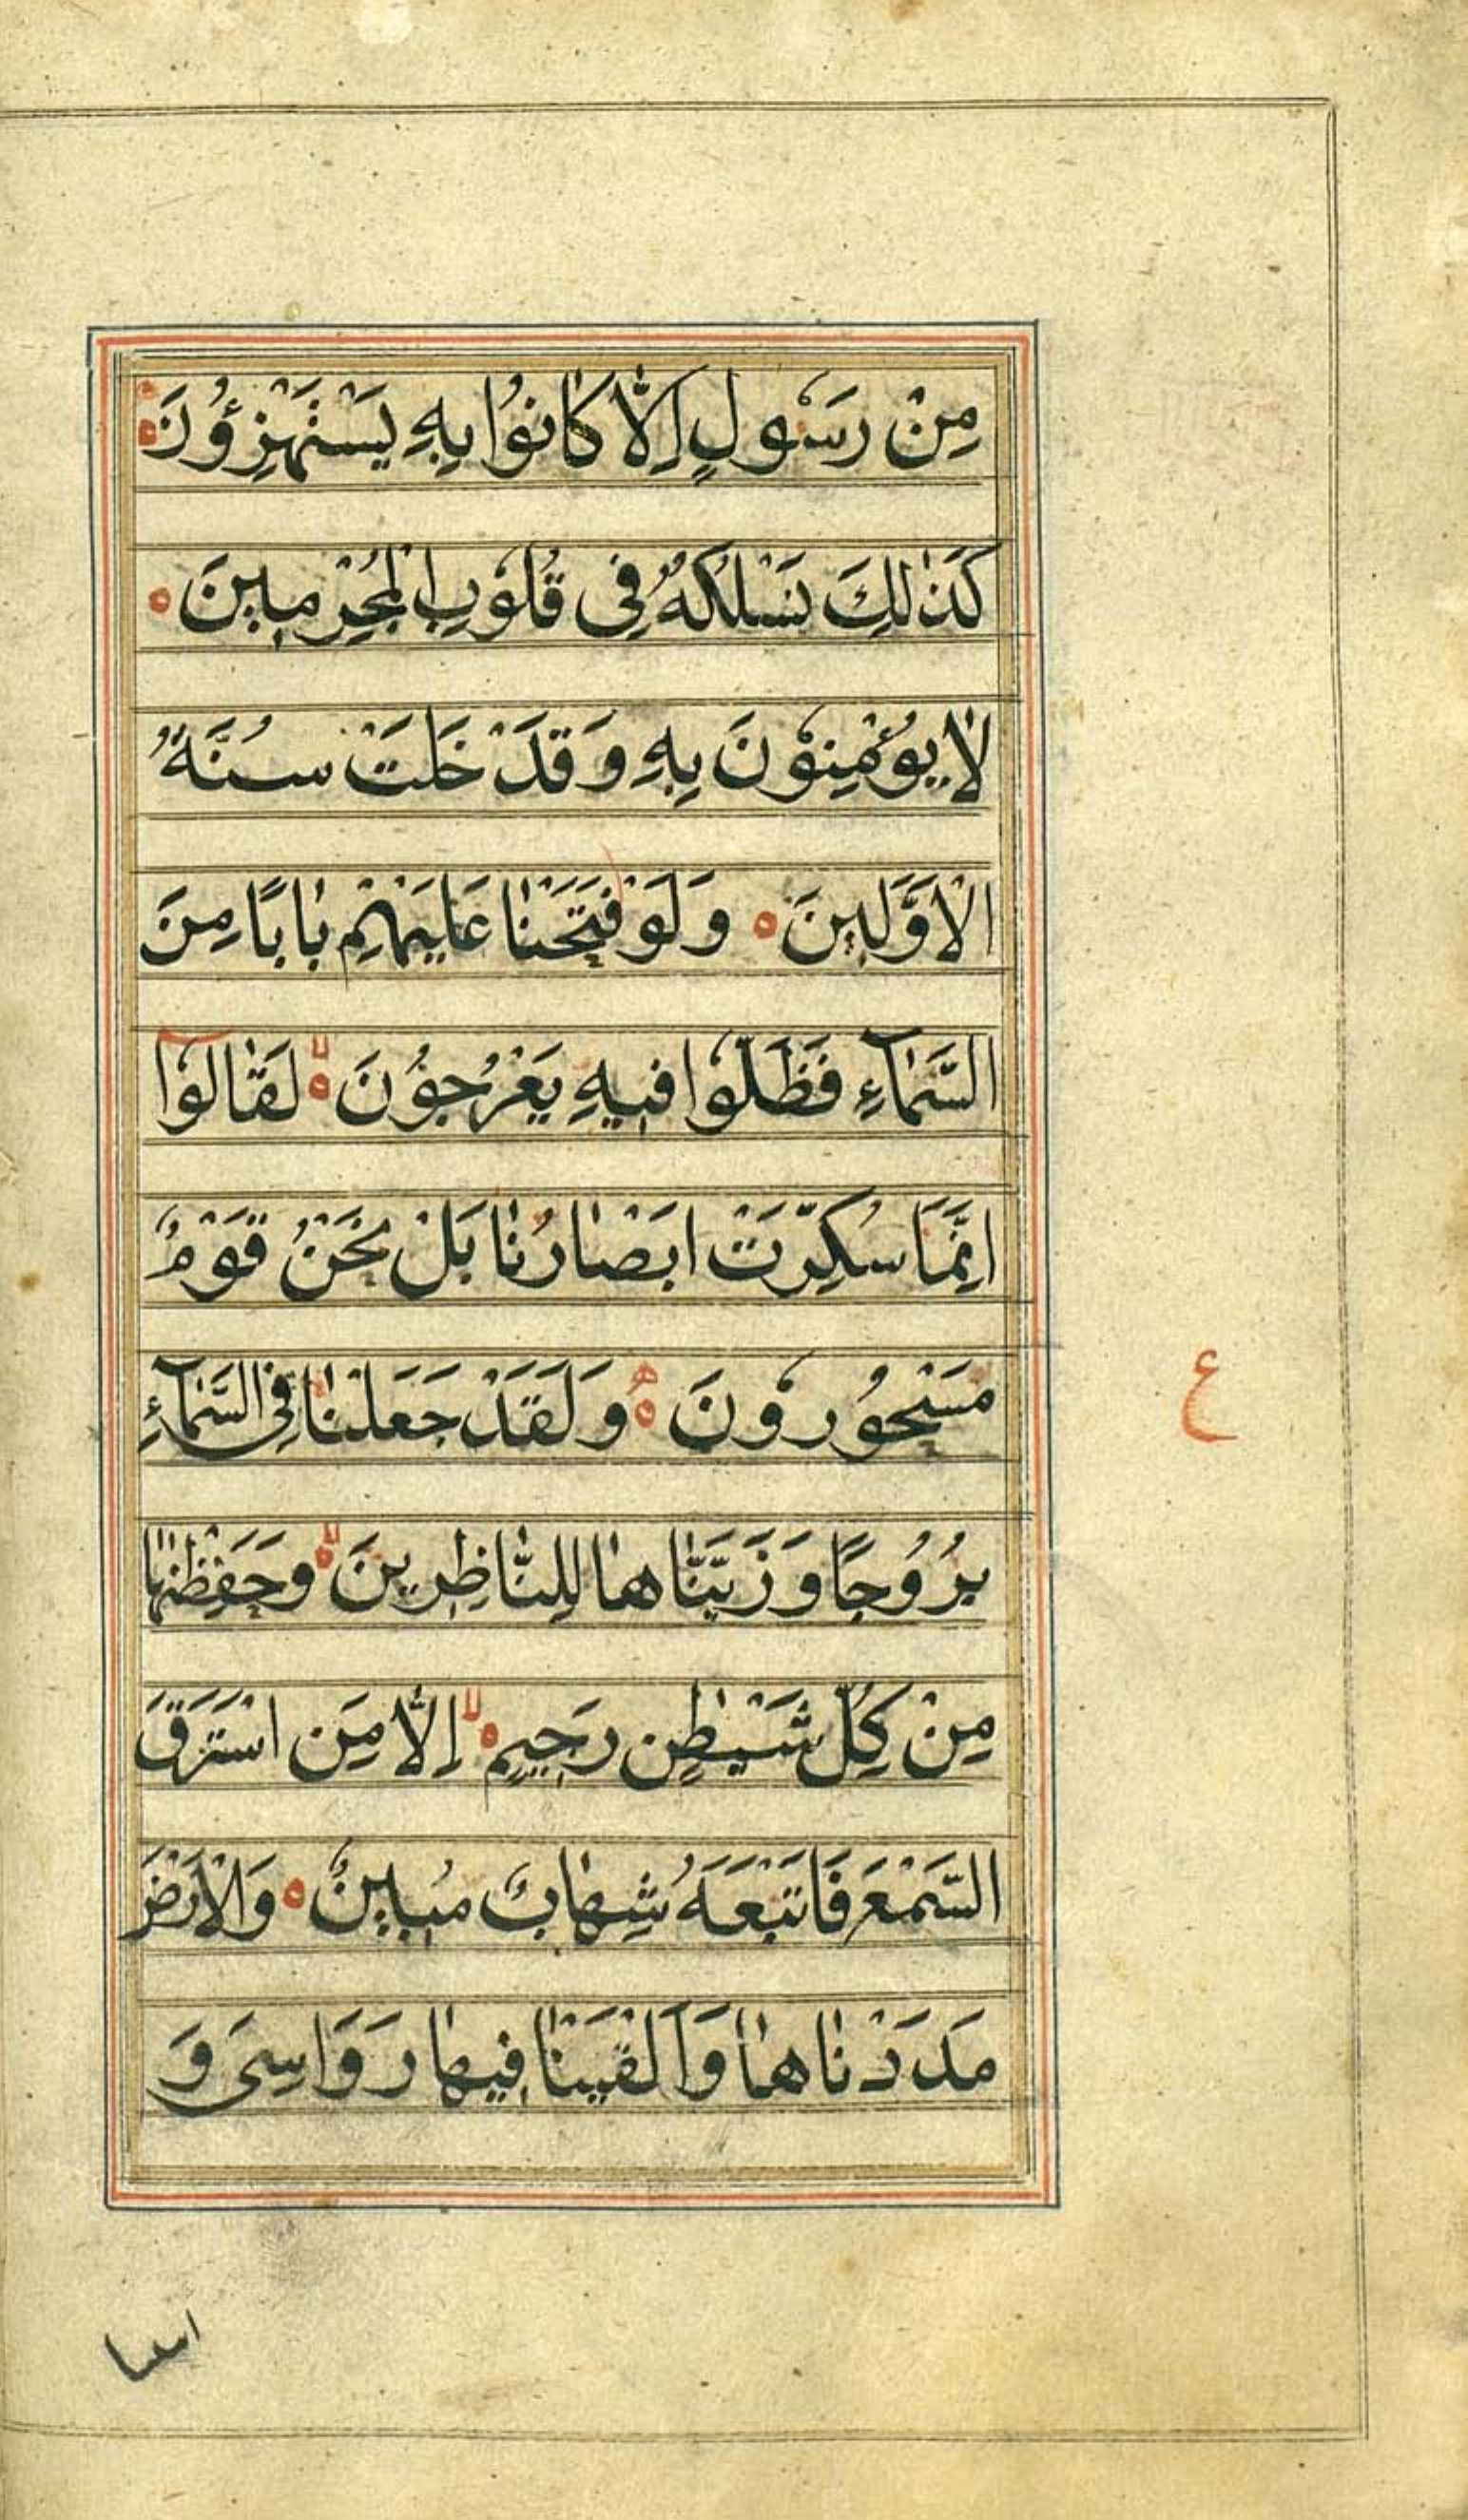 مِنْ رَسُولٍ اِلَّا كَانُوا بِهِ يَسْتَهْزِؤُنَ
كَذٰلِكَ نَسْلُكُهُ فِى قُلُوبِ الْمُجْرِمِينَ
لَا يُؤْمِنُونَ بِهِ وَقَدْ خَلَتْ سُنَّةُ
الْاَوَّلِينَ وَلَوْ فَتَحْنَا عَلَيْهِمْ بَابًا مِنَ
السَّمَآءِ فَظَلُّوا فِيهِ يَعْرُجُونَ لا لَقَالُوٓا
اِنَّمَا سُكِّرَتْ اَبْصَارُنَا بَلْ نَحْنُ قَوْمٌ
مَسْحُورُونَ وَلَقَدْ جَعَلْنَا فِى السَّمَآءِ
ع
بُرُوجًا وَزَيَّنَّاهَا لِلنَّاظِرِينَ لا وَحَفِظْنٰهَا
مِنْ كُلِّ شَيْطٰنٍ رَجِيمٍ لا اِلَّا مَنِ اسْتَرَقَ
السَّمْعَ فَاَتْبَعَهُ شِهَابٌ مُبِينٌ وَالْاَرْضَ
مَدَدْنَاهَا وَاَلْقَيْنَا فِيهَا رَوَاسِىَ وَ